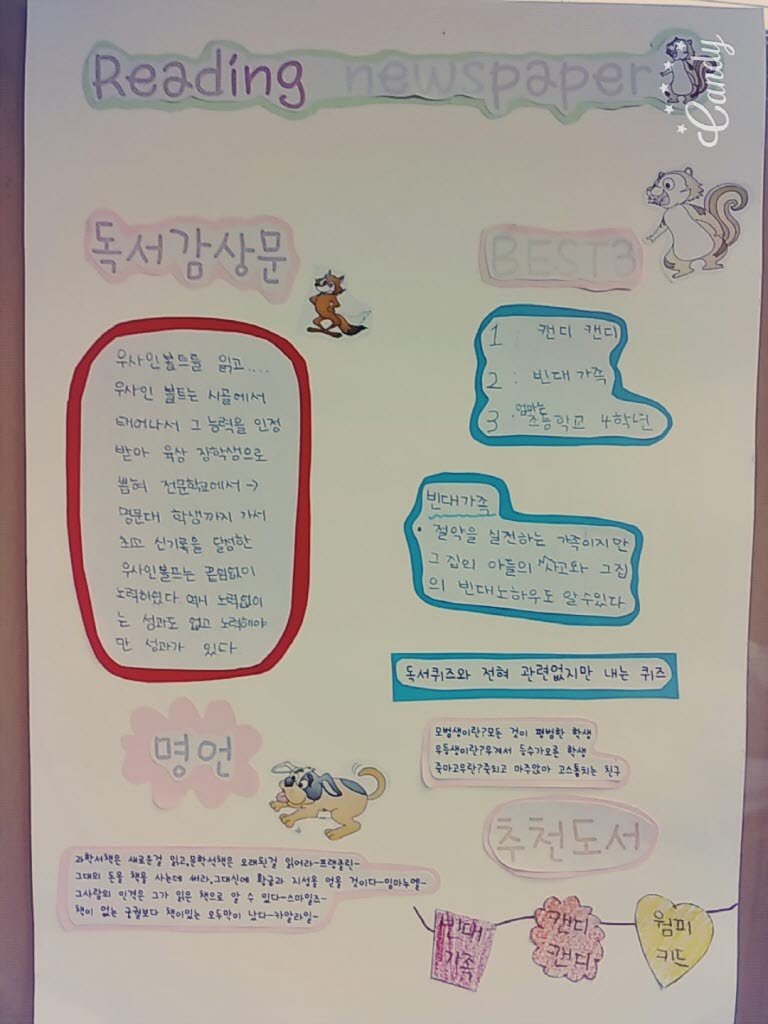 Reading newspaper
Candy
독서감상문
우사인볼트를 읽고....
우사인 볼트는 시골에서
태어나서 그 능력을 인정
받아 육상 장학생으로
뽑혀 전문학교에서→
명문대 학생까지 가서
최고 신기록을 달성한
우사인볼트는 끊임없이
노력하였다 역시 노력없이
는 성과도 없고 노력해야
만 성과가 있다
BEST3
1 : 캔디 캔디
2 : 빈대가족
3 : 엄마는 초등학교 4학년
빈대가족
• 절약을 실천하는 가족이지만
그 집의 아들의 사고와 그집
의 빈대노하우도 알수있다
독서퀴즈와 전혀 관련없지만 내는 퀴즈
모범생이란?모든 것이 평범한 학생
우등생이란?우겨서 등수가오른 학생
죽마고우란?죽치고 마주앉아 고스톱치는 친구
명언
과학서책은 새로운걸 읽고,문학서책은 오래된걸 읽어라-프랭클린-
그대의 돈을 책을 사는데 써라,그대신에 황금과 지성을 얻을 것이다-임마누엘-
그사람의 인격은 그가 읽은 책으로 알 수 있다-스마일즈-
책이 없는 궁궐보다 책이있는 오두막이 낫다-카알라일-
추천도서
빈대
가족
캔디
캔디
윔피
키드